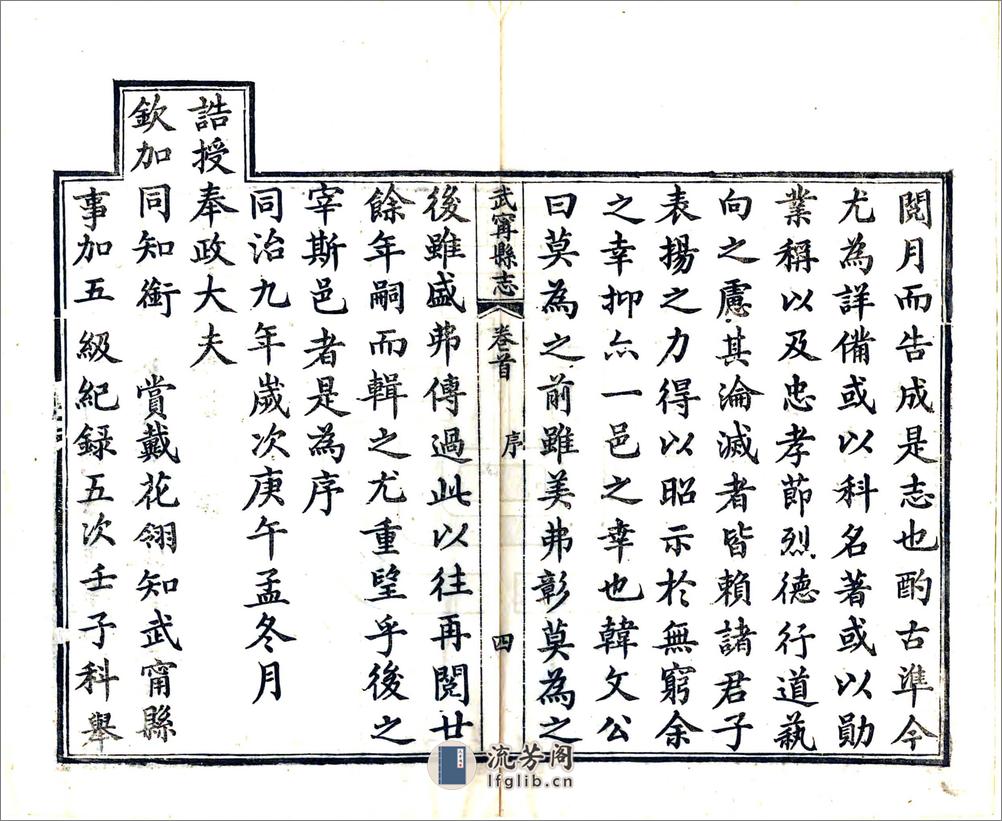 閱月而告成是志也酌古準今
尤為詳備或以科名著或以勛
業稱以及忠孝節烈德行道蓺
向之慮其淪滅者皆賴諸君子
表揚之力得以昭示於無窮余
之幸抑亦一邑之幸也韓文公
曰莫為之前雖美弗彰莫為之
武寗縣志 卷首 序 四
後雖盛弗傳過此以往再閱廿
餘年嗣而輯之尤重望乎後之
宰斯邑者是為序
同治九年歲次庚午孟冬月
誥授奉政大夫
欽加同知銜 賞戴花翎知武甯縣
事加五級紀錄五次壬子科舉
流芳阁
lfglib.cn